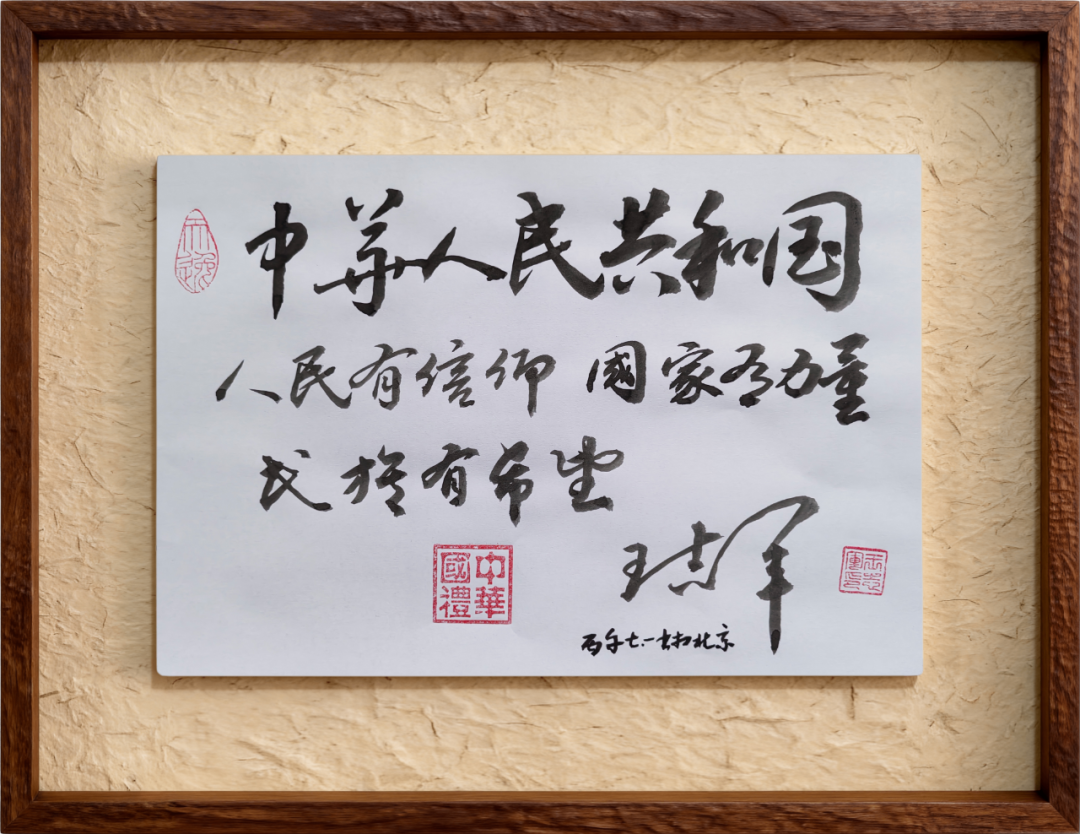 中华人民共和国
人民有信仰 國家有力量
民族有希望
王志军
丙午七·一书于北京
中華國禮